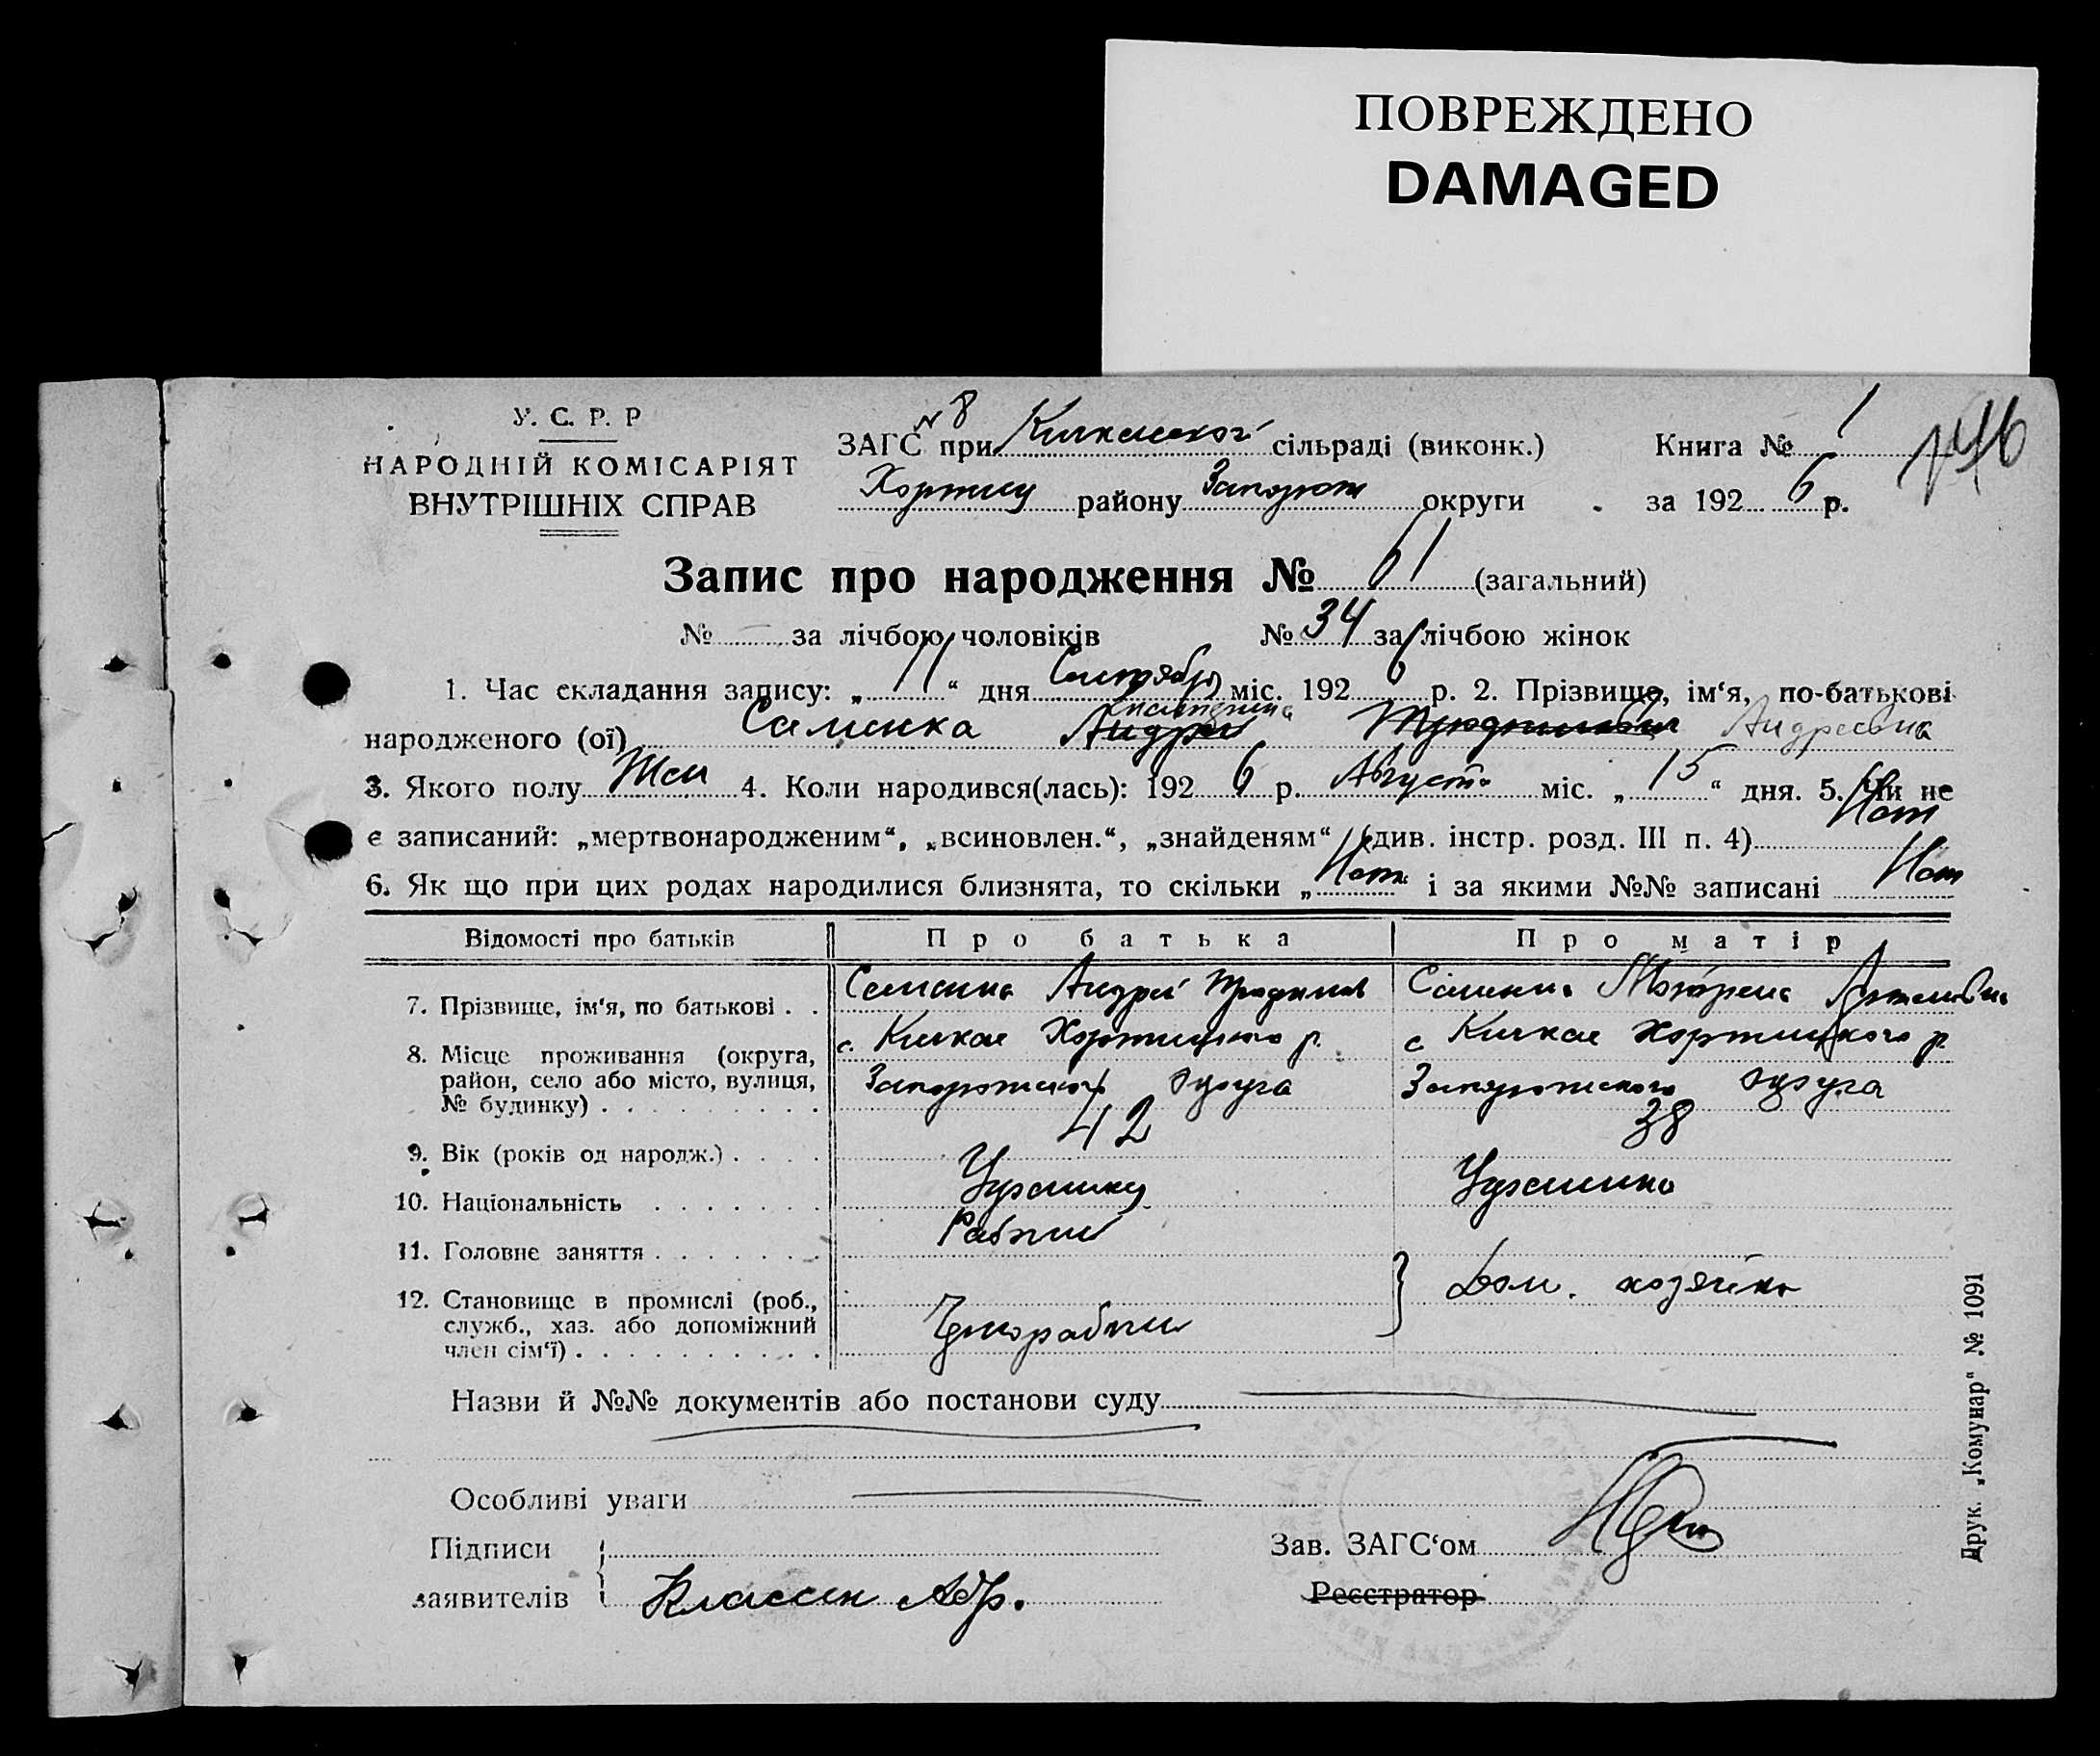 ПОВРЕЖДЕНО
DAMAGED
У. С. Р. Р
НАРОДНІЙ КОМІСАРІЯТ
ВНУТРІШНІХ СПРАВ
№ 8
ЗАГС при Кичкасской сільраді (виконк.) Книга № 1
району Запорож округи за 1926 р.
Запис про народження № 61 (загальний)
№ — за лічбою чоловіків № 34 за лічбою жінок
1. Час складання запису: „11“ дня Сентября міс. 1926 р. 2. Прізвище, ім‘я, по-батькові
народженого (ої) Саменка Андреевна
3. Якого полу Жен 4. Коли народився(лась): 1926 р. Августа міс. „15“ дня. 5. Чи не
є записаний: „мертвонародженим“, „всиновлен.“, „знайденям“ (див. інстр. розд. III п. 4) Нет
6. Як що при цих родах народилися близнята, то скільки „Нет і за якими №№ записані Нет
Відомості про батьків Про батька Про матір
7. Прізвище, ім‘я, по батькові . . Андрей
8. Місце проживання (округа, район, село або місто, вулиця, № будинку) . . . . . . . . .
с. Кичкас Хортицкого р. с Кичкас Хортицкого р.
Запорожского округа Запорожского округа
9. Вік (років од народж.) . . . . 42 38
10. Національність . . . . . . . Украинец Украинка
11. Головне заняття . . . . . . . Рабочий
12. Становище в промислі (роб., служб., хаз. або допоміжний член сім‘ї) . . . . . . . . . . Чернорабочий Дом. хозяйка
Назви й №№ документів або постанови суду
Особливі уваги
Підписи
заявителів Классен Абр.
Зав. ЗАГС‘ом
Реєстратор
Друк. „Комунар“ № 1091